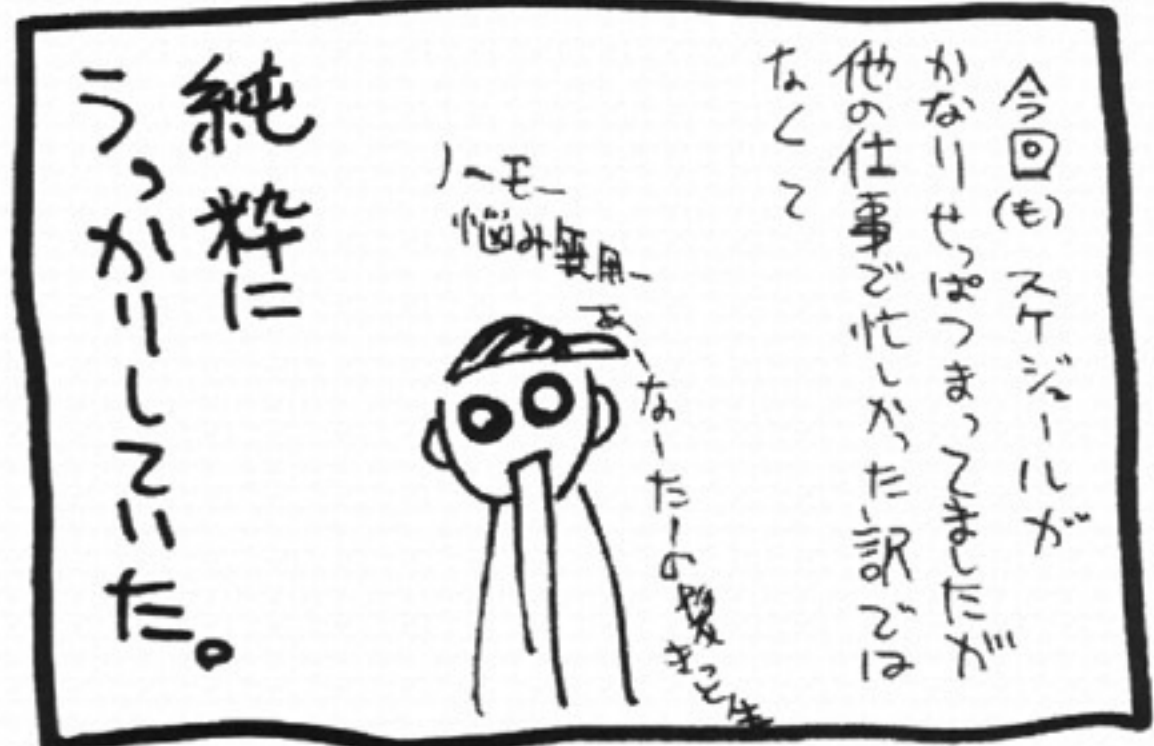 今回(も)スケジュールが
かなりせっぱつまってましたが
他の仕事で忙しかった訳では
なくて
ノーモー
悩み無用ー
あーなーたーの髪きっと生
純粋に
うっかりしていた。